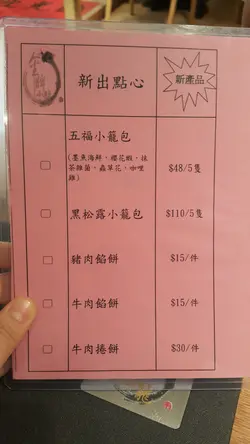 新出點心
新產品
五福小籠包
(墨魚海鮮，櫻花蝦，抹
茶雜菌，蟲草花，咖哩
雞)
$48/5隻
黑松露小籠包
$110/5隻
豬肉餡餅
$15/件
牛肉餡餅
$15/件
牛肉捲餅
$30/件